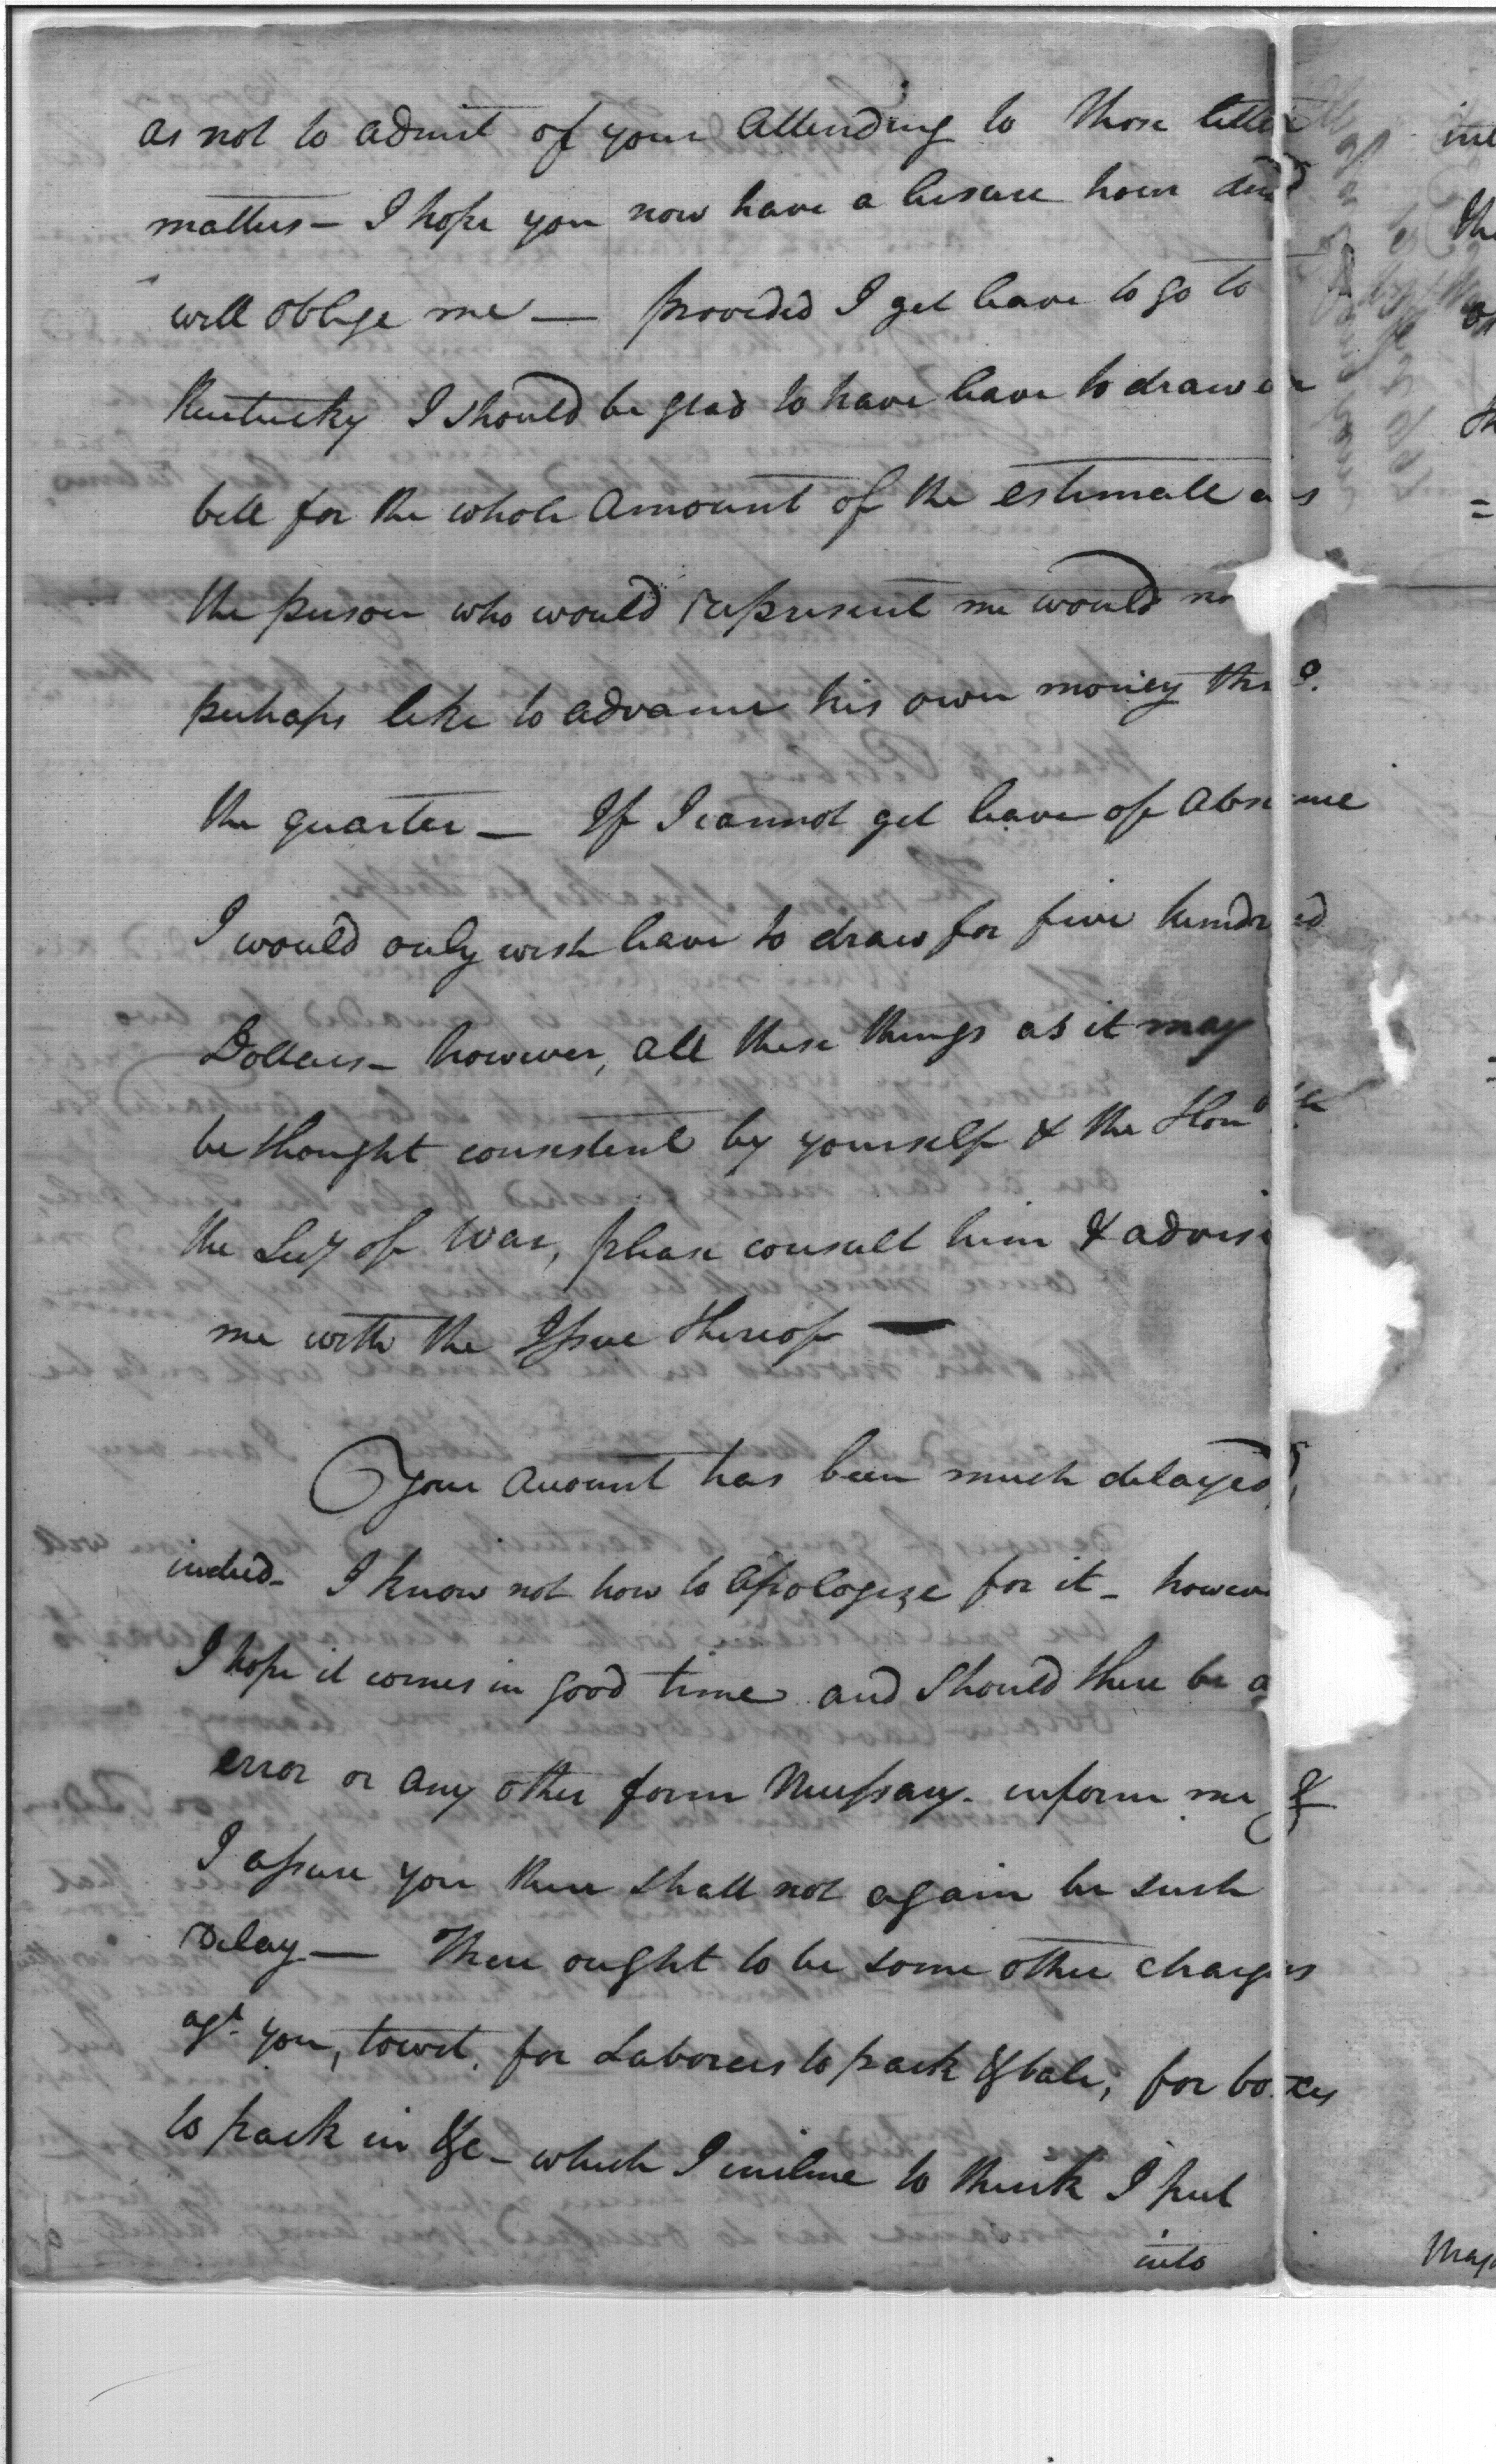 as not to admit of your attending to those little
matters — I hope you now have a leisure hour and
will oblige me — provided I get leave to go to
Kentucky I should be glad to have leave to draw a
bill for the whole amount of the estimate as
the person who would represent me would no
perhaps like to advance his own money thro.
the quarter — If I cannot get leave of absence
I would only wish leave to draw for five hundred
Dollars — however, all these things as it may
be thought consistent by yourself & the Honble
the Secy of War, please consult him & advise
me with the Issue thereof —
Your account has been much delayed,
indeed — I know not how to apologize for it — however
I hope it comes in good time and should there be a
error or any other form necessary. inform me &
I assure you there shall not again be such
Delay — There ought to be some other charges
agt. you, towit, for Laborers to pack & bale, for boxes
to pack in &c — which I incline to think I put
into
inl
the
th
=
Maj